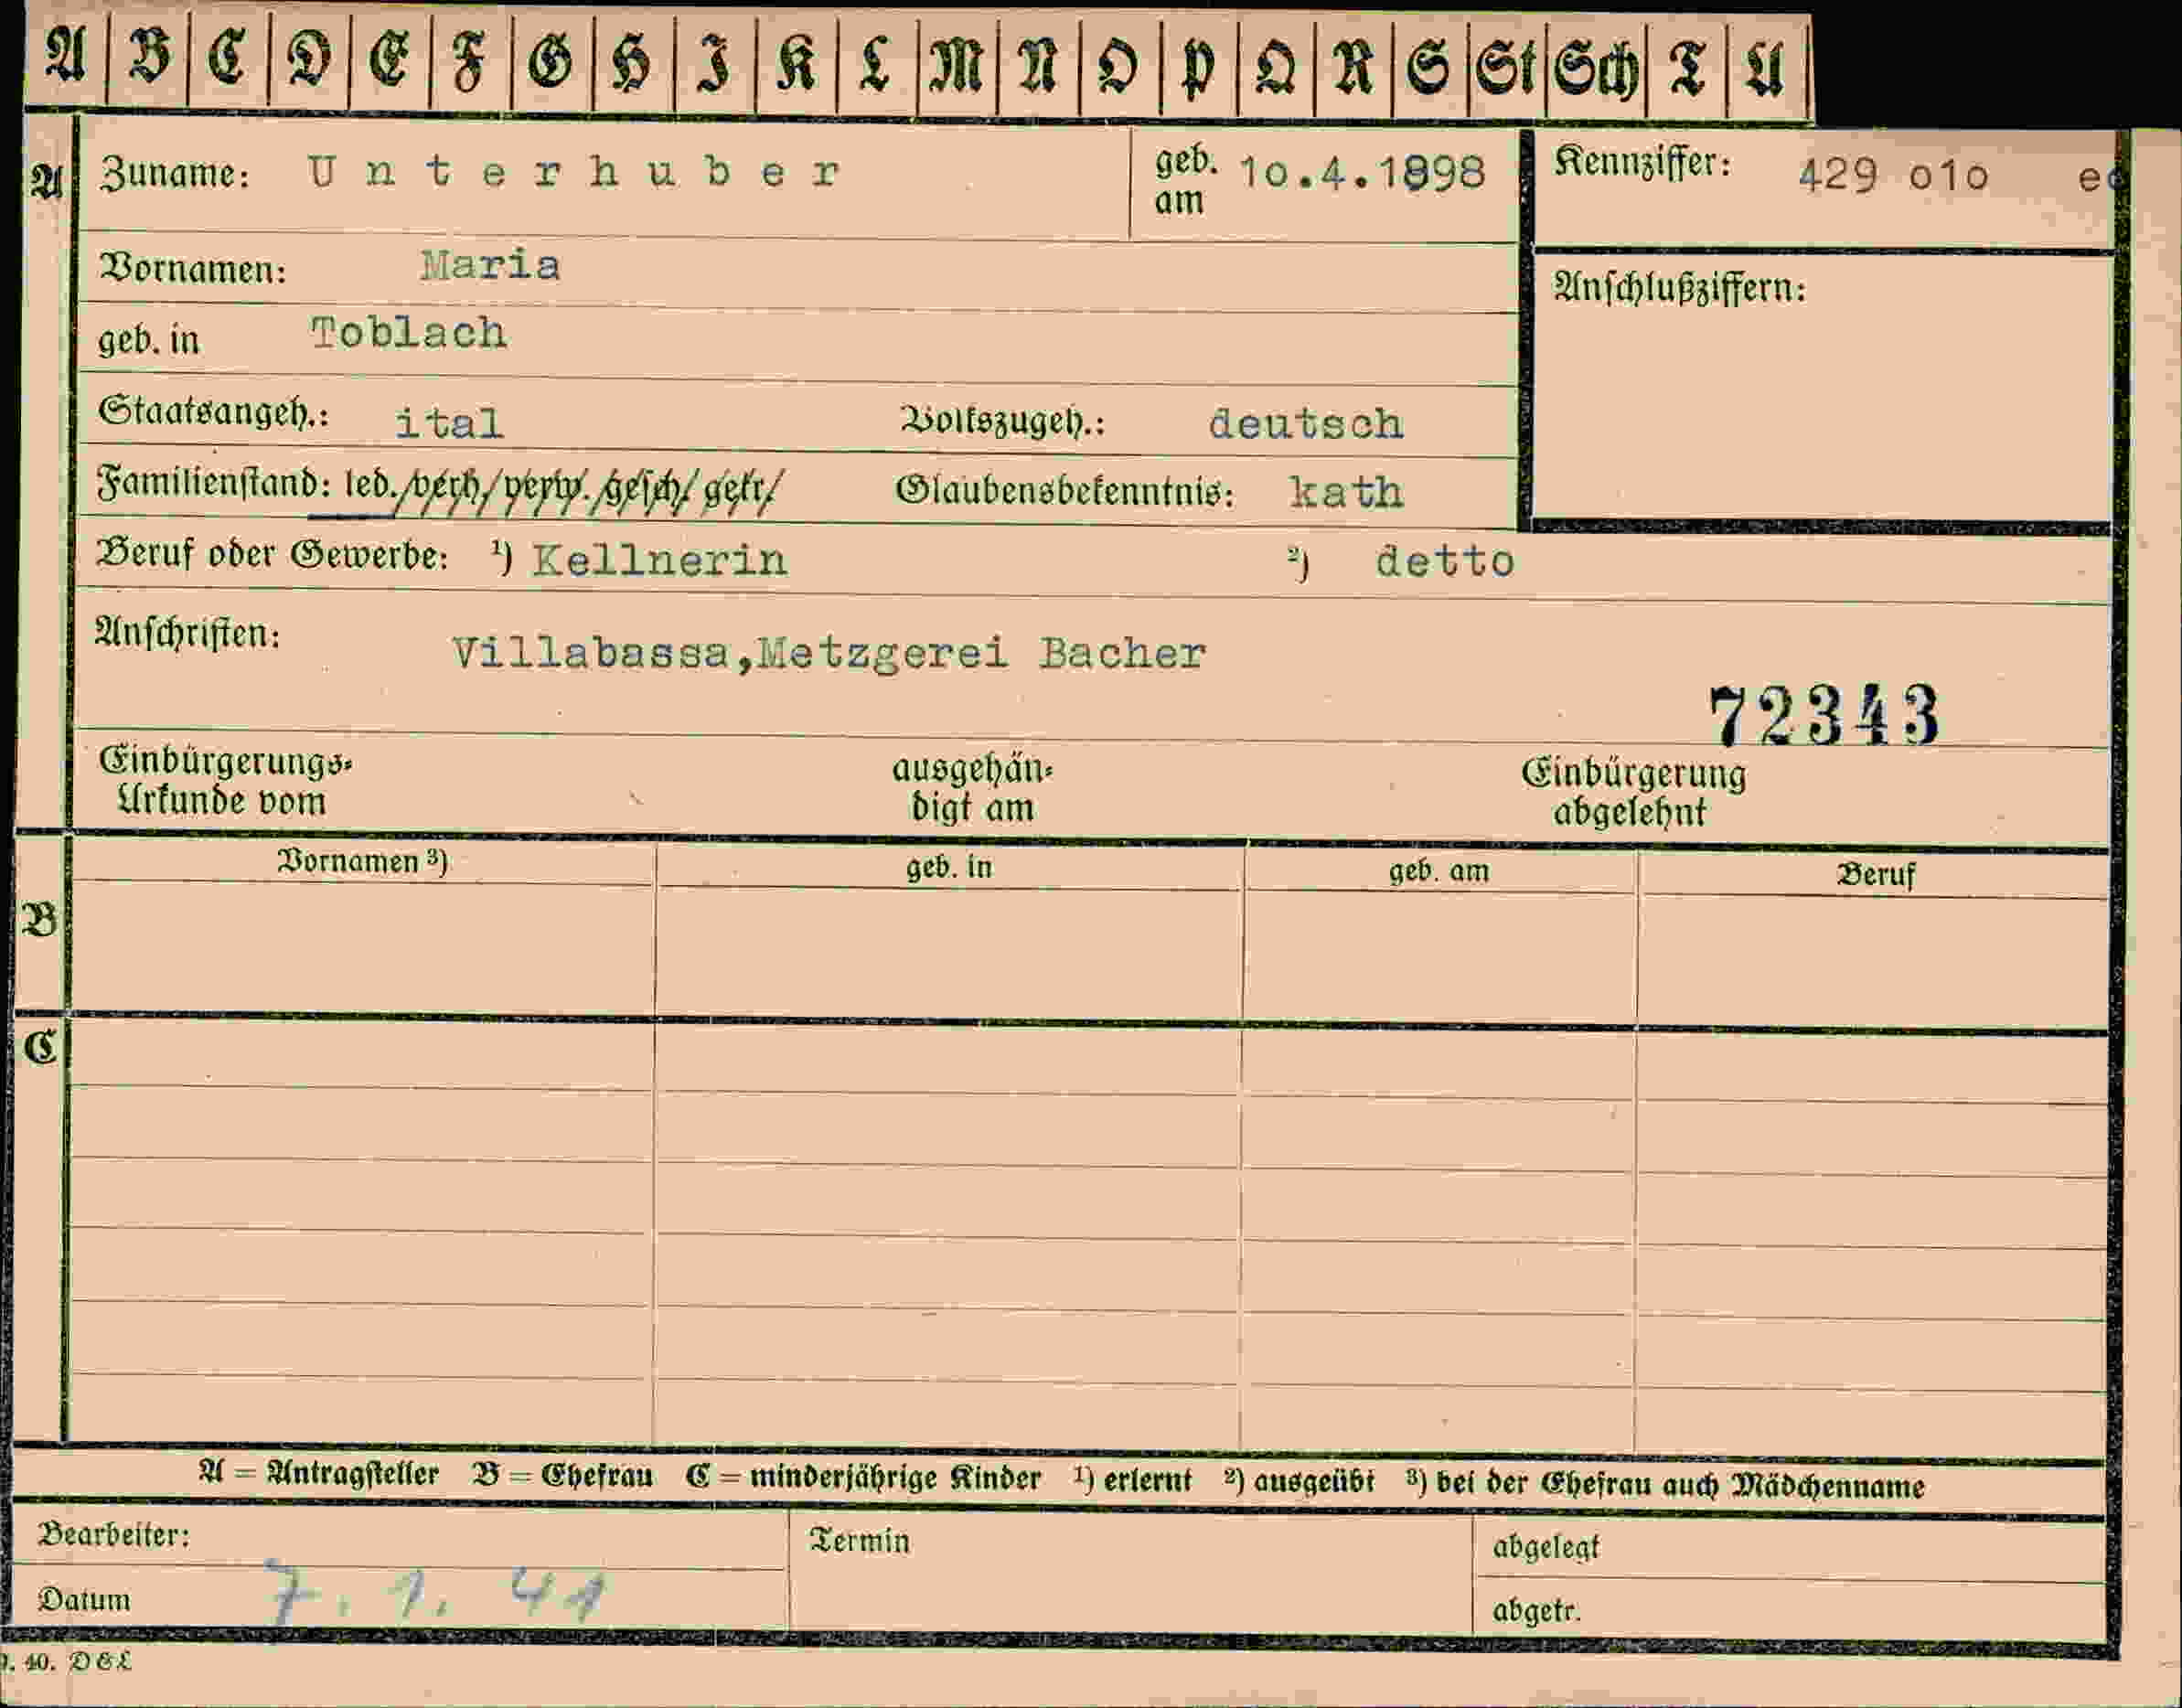 A B C D E F G H I K L M N O P Q R S St Sch T U
A Zuname: Unterhuber geb. am 10.4.1898 Kennziffer: 429 o1o
Vornamen: Maria
Anschlußziffern:
geb. in Toblach
Staatsangeh.: ital Volkszugeh.: deutsch
Familienstand: led./verh/verw./gesch/getr/ Glaubensbekenntnis: kath
Beruf oder Gewerbe: ¹) Kellnerin ²) detto
Anschriften: Villabassa,Metzgerei Bacher
72343
Einbürgerungs- ausgehän- Einbürgerung
Urkunde vom digt am abgelehnt
Vornamen ³) geb. in geb. am Beruf
B
C
A = Antragsteller B = Ehefrau C = minderjährige Kinder ¹) erlernt ²) ausgeübt ³) bei der Ehefrau auch Mädchenname
Bearbeiter: Termin abgelegt
Datum 7. 1. 41 abgetr.
40.